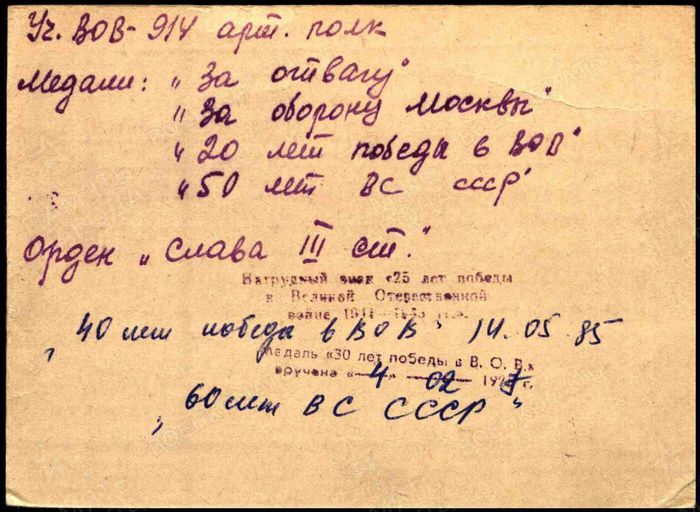 Уч. ВОВ - 914 арт. полк
Медали: „За отвагу"
„За оборону Москвы"
„20 лет победы в ВОВ"
„50 лет ВС СССР"
Орден „Слава III ст."
Нагрудный знак «25 лет победы
в Великой Отечественной
войне 1941—1945 гг.»
„40 лет победа в ВОВ" 14.05.85
Медаль «30 лет победы в В. О. В.»
вручена «4» 02 197 г.
„60 лет ВС СССР"